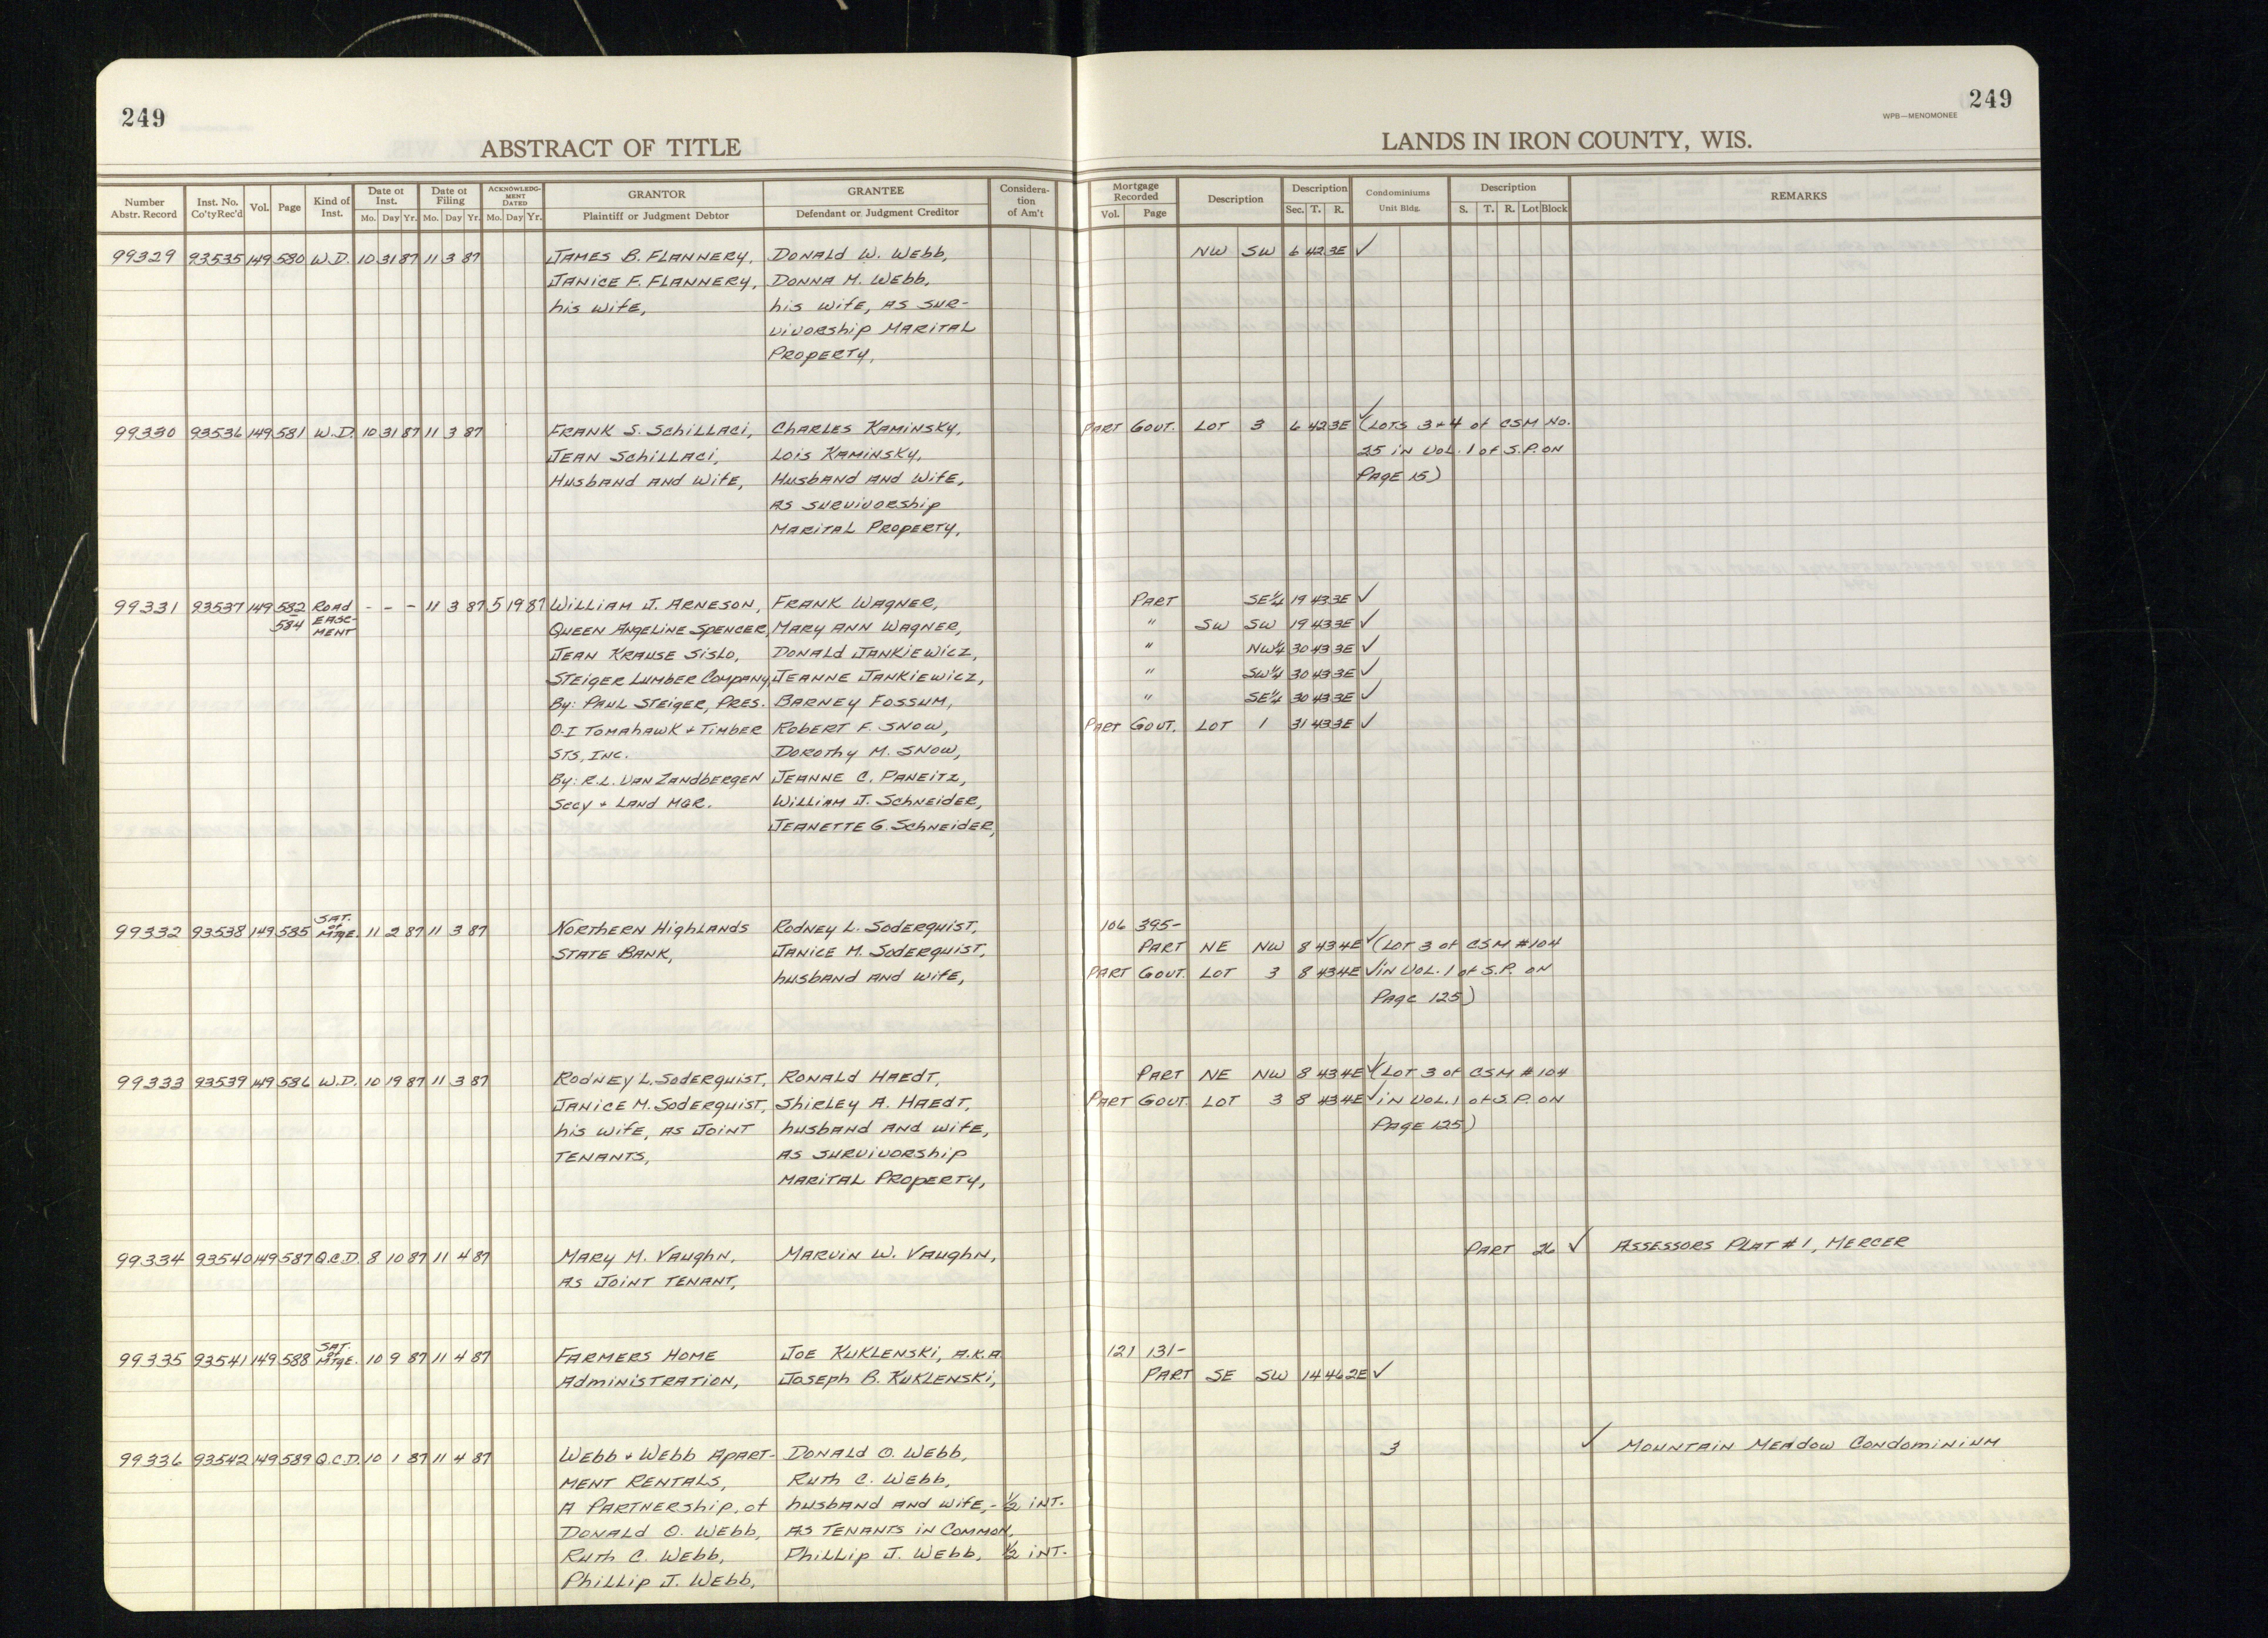 249
249
WPB—MENOMONEE
ABSTRACT OF TITLE
LANDS IN IRON COUNTY, WIS.
Number Abstr. Record | Inst. No. Co'ty Rec'd | Vol. | Page | Kind of Inst. | Date of Inst. Mo. Day Yr. | Date of Filing Mo. Day Yr. | ACKNOWLEDGMENT DATED Mo. Day Yr. | GRANTOR Plaintiff or Judgment Debtor | GRANTEE Defendant or Judgment Creditor | Consideration of Am't | Mortgage Recorded Vol. Page | Description | Description Sec. T. R. | Condominiums Unit Bldg. | Description S. T. R. Lot Block | REMARKS
99329 93535 149 580 W.D. 10 31 87 11 3 87 JAMES B. FLANNERY, DONALD W. WEBB, NW SW 6 42 3E ✓
JANICE F. FLANNERY, DONNA M. WEBB,
his wife, his wife, AS SUR-
VIVORSHIP MARITAL
PROPERTY,
99330 93536 149 581 W.D. 10 31 87 11 3 87 FRANK S. SCHILLACI, CHARLES KAMINSKY, PART GOVT. LOT 3 6 42 3E ✓ (LOTS 3+4 of CSM NO.
JEAN SCHILLACI, LOIS KAMINSKY, 25 IN VOL. 1 of S.P. ON
HUSBAND AND WIFE, HUSBAND AND WIFE, PAGE 15)
AS SURVIVORSHIP
MARITAL PROPERTY,
99331 93537 149 582 ROAD - - - 11 3 87 5 19 87 WILLIAM J. ARNESON, FRANK WAGNER, PART SE¼ 19 43 3E ✓
584 EASE- QUEEN ANGELINE SPENCER, MARY ANN WAGNER, " SW SW 19 43 3E ✓
MENT JEAN KRAUSE SISLO, DONALD JANKIEWICZ, " NW¼ 30 43 3E ✓
STEIGER LUMBER COMPANY, JEANNE JANKIEWICZ, " SW¼ 30 43 3E ✓
By: PAUL STEIGER, PRES. BARNEY FOSSUM, " SE¼ 30 43 3E ✓
O.I TOMAHAWK + TIMBER ROBERT F. SNOW, PART GOVT. LOT 1 31 43 3E ✓
STS, INC. DOROTHY M. SNOW,
By: R.L. VAN ZANDBERGEN JEANNE C. PANEITZ,
SECY + LAND MGR. WILLIAM J. SCHNEIDER,
JEANETTE G. SCHNEIDER,
99332 93538 149 585 SAT. of MTGE. 11 2 87 11 3 87 NORTHERN HIGHLANDS RODNEY L. SODERQUIST, 106 395-
STATE BANK, JANICE M. SODERQUIST, PART NE NW 8 43 4E ✓ (LOT 3 of CSM #104
husband AND wife, PART GOVT. LOT 3 8 43 4E ✓ IN VOL. 1 of S.P. ON
PAGE 125)
99333 93539 149 586 W.D. 10 19 87 11 3 87 RODNEY L. SODERQUIST, RONALD HAEDT, PART NE NW 8 43 4E ✓ (LOT 3 of CSM #104
JANICE M. SODERQUIST, SHIRLEY A. HAEDT, PART GOVT. LOT 3 8 43 4E ✓ IN VOL. 1 of S.P. ON
his wife, AS JOINT husband AND wife, PAGE 125)
TENANTS, AS SURVIVORSHIP
MARITAL PROPERTY,
99334 93540 149 587 Q.C.D. 8 10 87 11 4 87 MARY M. VAUGHN, MARVIN W. VAUGHN, PART 26 ✓ ASSESSORS PLAT #1, MERCER
AS JOINT TENANT,
99335 93541 149 588 SAT. of MTGE. 10 9 87 11 4 87 FARMERS HOME JOE KUKLENSKI, A.K.A. 121 131-
ADMINISTRATION, JOSEPH B. KUKLENSKI, PART SE SW 14 46 2E ✓
99336 93542 149 589 Q.C.D. 10 1 87 11 4 87 WEBB + WEBB APART- DONALD O. WEBB, 3 ✓ MOUNTAIN MEADOW CONDOMINIUM
MENT RENTALS, RUTH C. WEBB,
A PARTNERSHIP, of husband AND wife, - ½ INT.
DONALD O. WEBB, AS TENANTS IN COMMON,
RUTH C. WEBB, PHILLIP J. WEBB, ½ INT.
PHILLIP J. WEBB,